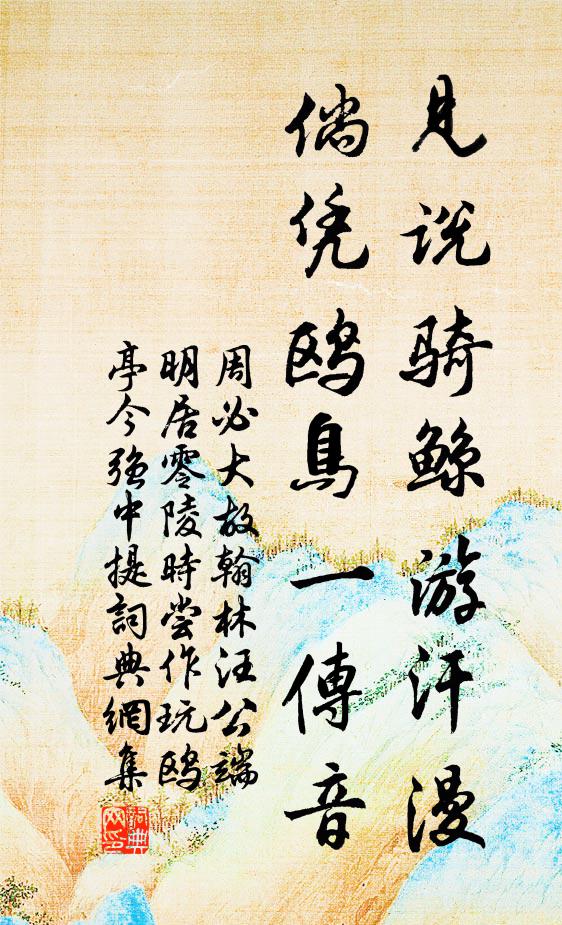 見説騎鯨游汗漫
倘凭鷗鳥一傳音
周必大故翰林汪公端
明居零陵時嘗作玩鷗
亭今強中提詞典網集